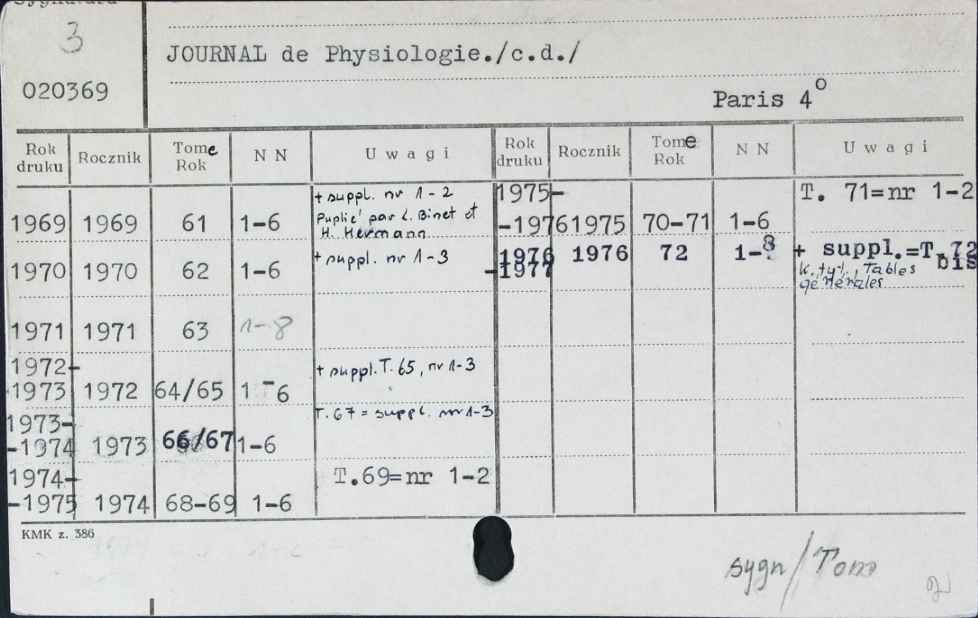 Sygnatura
3
020369
JOURNAL de Physiologie./c.d./
Paris 4°
Rok druku Rocznik Tome Rok N N Uwagi
1969 1969 61 1-6 + suppl. nr 1-2
Puplié par L. Binet et
H. Hermann
1970 1970 62 1-6 + suppl. nr 1-3
1971 1971 63 1-8
1972-
-1973 1972 64/65 1-6 + suppl. T. 65, nr 1-3
1973-
-1974 1973 66/67 1-6 T. 67 = suppl. nr 1-3
1974-
-1975 1974 68-69 1-6 T.69=nr 1-2
Rok druku Rocznik Tome Rok N N Uwagi
1975-
-1976 1975 70-71 1-6 T. 71=nr 1-2
1976
-1977 1976 72 1-8 + suppl.=T.72
bis
K. tyt., Tables
générales
KMK z. 386
sygn/Tom